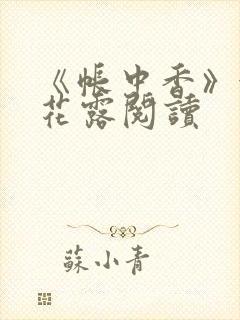 《帳中香》
花露閱讀
蘇小青